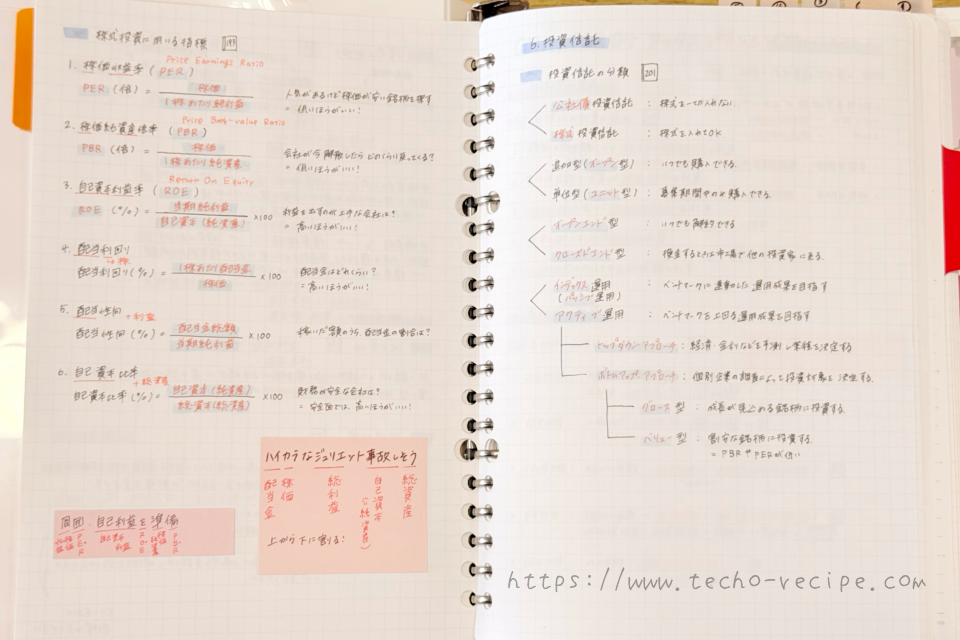 株式投資に用いる指標 199
Price Earnings Ratio
1. 株価収益率 (PER)
PER (倍) = 株価 / 1株あたり純利益
人気があるけど株価が安い銘柄を探す
= 低いほうがいい!
Price Book-value Ratio
2. 株価純資産倍率 (PBR)
PBR (倍) = 株価 / 1株あたり純資産
会社が今解散したらどのくらい戻ってくる?
= 低いほうがいい!
Return On Equity
3. 自己資本利益率 (ROE)
ROE (%) = 当期純利益 / 自己資本 (純資産) ×100
利益を出すのが上手な会社は?
= 高いほうがいい!
4. 配当利回り
→株
配当利回り (%) = 1株あたり配当金 / 株価 ×100
配当金はどれくらい?
= 高いほうがいい!
5. 配当性向
→利益
配当性向 (%) = 配当金総額 / 当期純利益 ×100
稼いだ金額のうち、配当金の割合は?
6. 自己資本比率
→総資産
自己資本比率 (%) = 自己資本 (純資産) / 総資本 (総資産) ×100
財務が安全な会社は?
= 安全面では、高いほうがいい!
ハイカラなジュリエント事故しそう
配当金 株価 純利益 自己資本 (純資産) 総資産
上から下に割る!
周囲、自己利益を準備
6. 投資信託
投資信託の分類 201
公社債投資信託 : 株式を一切入れない。
株式投資信託 : 株式を入れてOK
追加型 (オープン型) : いつでも購入できる。
単位型 (ユニット型) : 募集期間中のみ購入できる。
オープンエンド型 : いつでも解約できる
クローズドエンド型 : 換金するときは市場で他の投資家に売る。
インデックス運用
(パッシブ運用) : ベンチマークに連動した運用成果を目指す
アクティブ運用 : ベンチマークを上回る運用成果を目指す
トップダウンアプローチ : 経済・金利などを予測し業種を決定する
ボトムアップアプローチ : 個別企業の調査によって投資対象を決定する.
グロース型 : 成長が見込める銘柄に投資する.
バリュー型 : 割安な銘柄に投資する.
= PBRやPERが低い
https://www.techo-recipe.com